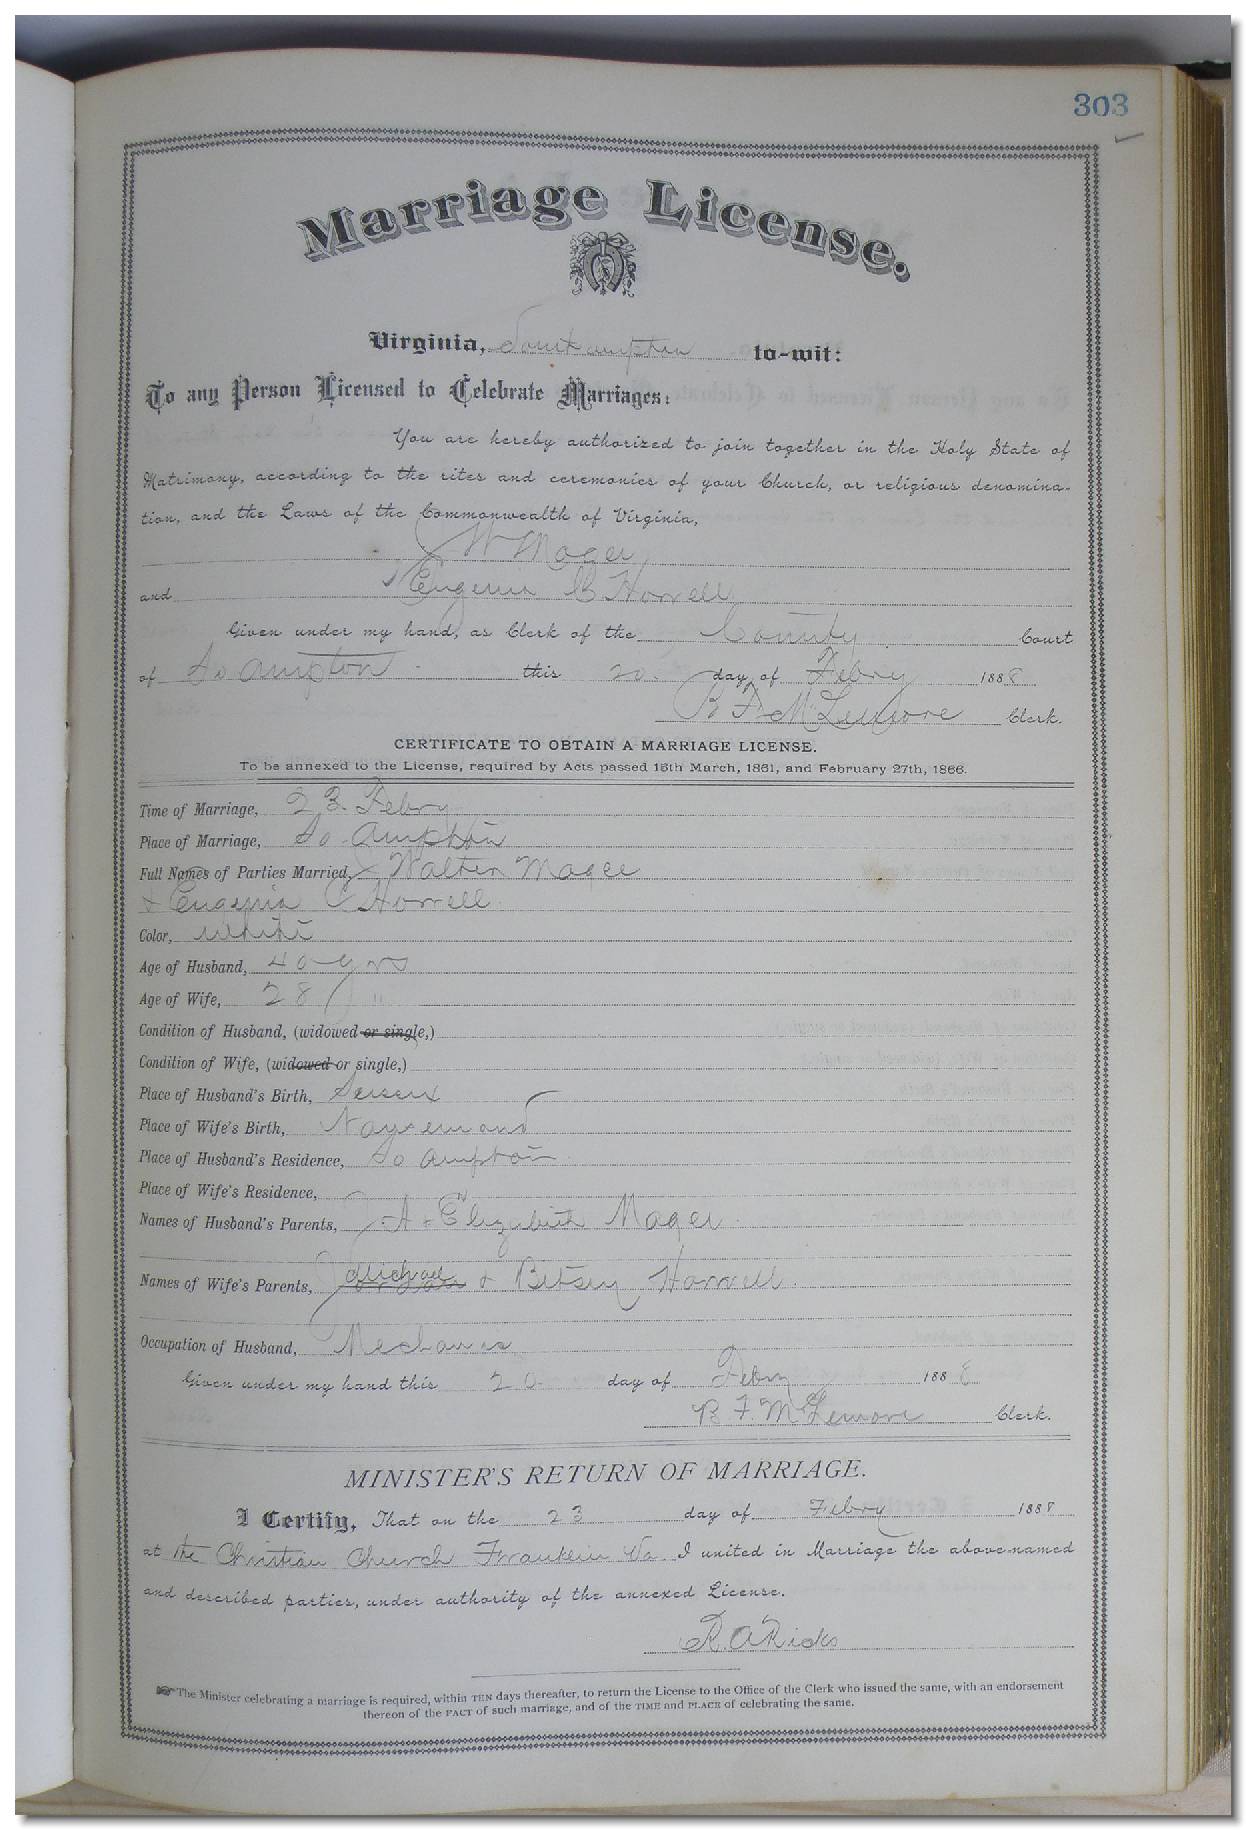 303
Marriage License.
Virginia, Southampton to-wit:
To any Person Licensed to Celebrate Marriages:
You are hereby authorized to join together in the Holy State of
Matrimony, according to the rites and ceremonies of your Church, or religious denomina-
tion, and the Laws of the Commonwealth of Virginia,
J W Magee
and Eugenia C Howell
Given under my hand, as Clerk of the County Court
of So ampton this 20 day of Febry 1888
B F McLemore Clerk.
CERTIFICATE TO OBTAIN A MARRIAGE LICENSE.
To be annexed to the License, required by Acts passed 15th March, 1861, and February 27th, 1866.
Time of Marriage, 23 Febry
Place of Marriage, So ampton
Full Names of Parties Married, J Walter Magee
& Eugenia C Howell
Color, White
Age of Husband, 40 yrs
Age of Wife, 28 "
Condition of Husband, (widowed or single,)
Condition of Wife, (widowed or single,)
Place of Husband's Birth, Sussex
Place of Wife's Birth, Nansemond
Place of Husband's Residence, So ampton
Place of Wife's Residence, "
Names of Husband's Parents, J. A & Elizabeth Magee
Names of Wife's Parents, Michael & Betsey Howell
Occupation of Husband, Mechanic
Given under my hand this 20 day of Febry 1888
B. F. McLemore Clerk.
MINISTER'S RETURN OF MARRIAGE.
I Certify, That on the 23 day of Febry 1888
at the Christian Church Franklin Va. I united in Marriage the above-named
and described parties, under authority of the annexed License.
R A Ricks
The Minister celebrating a marriage is required, within TEN days thereafter, to return the License to the Office of the Clerk who issued the same, with an endorsement
thereon of the FACT of such marriage, and of the TIME and PLACE of celebrating the same.